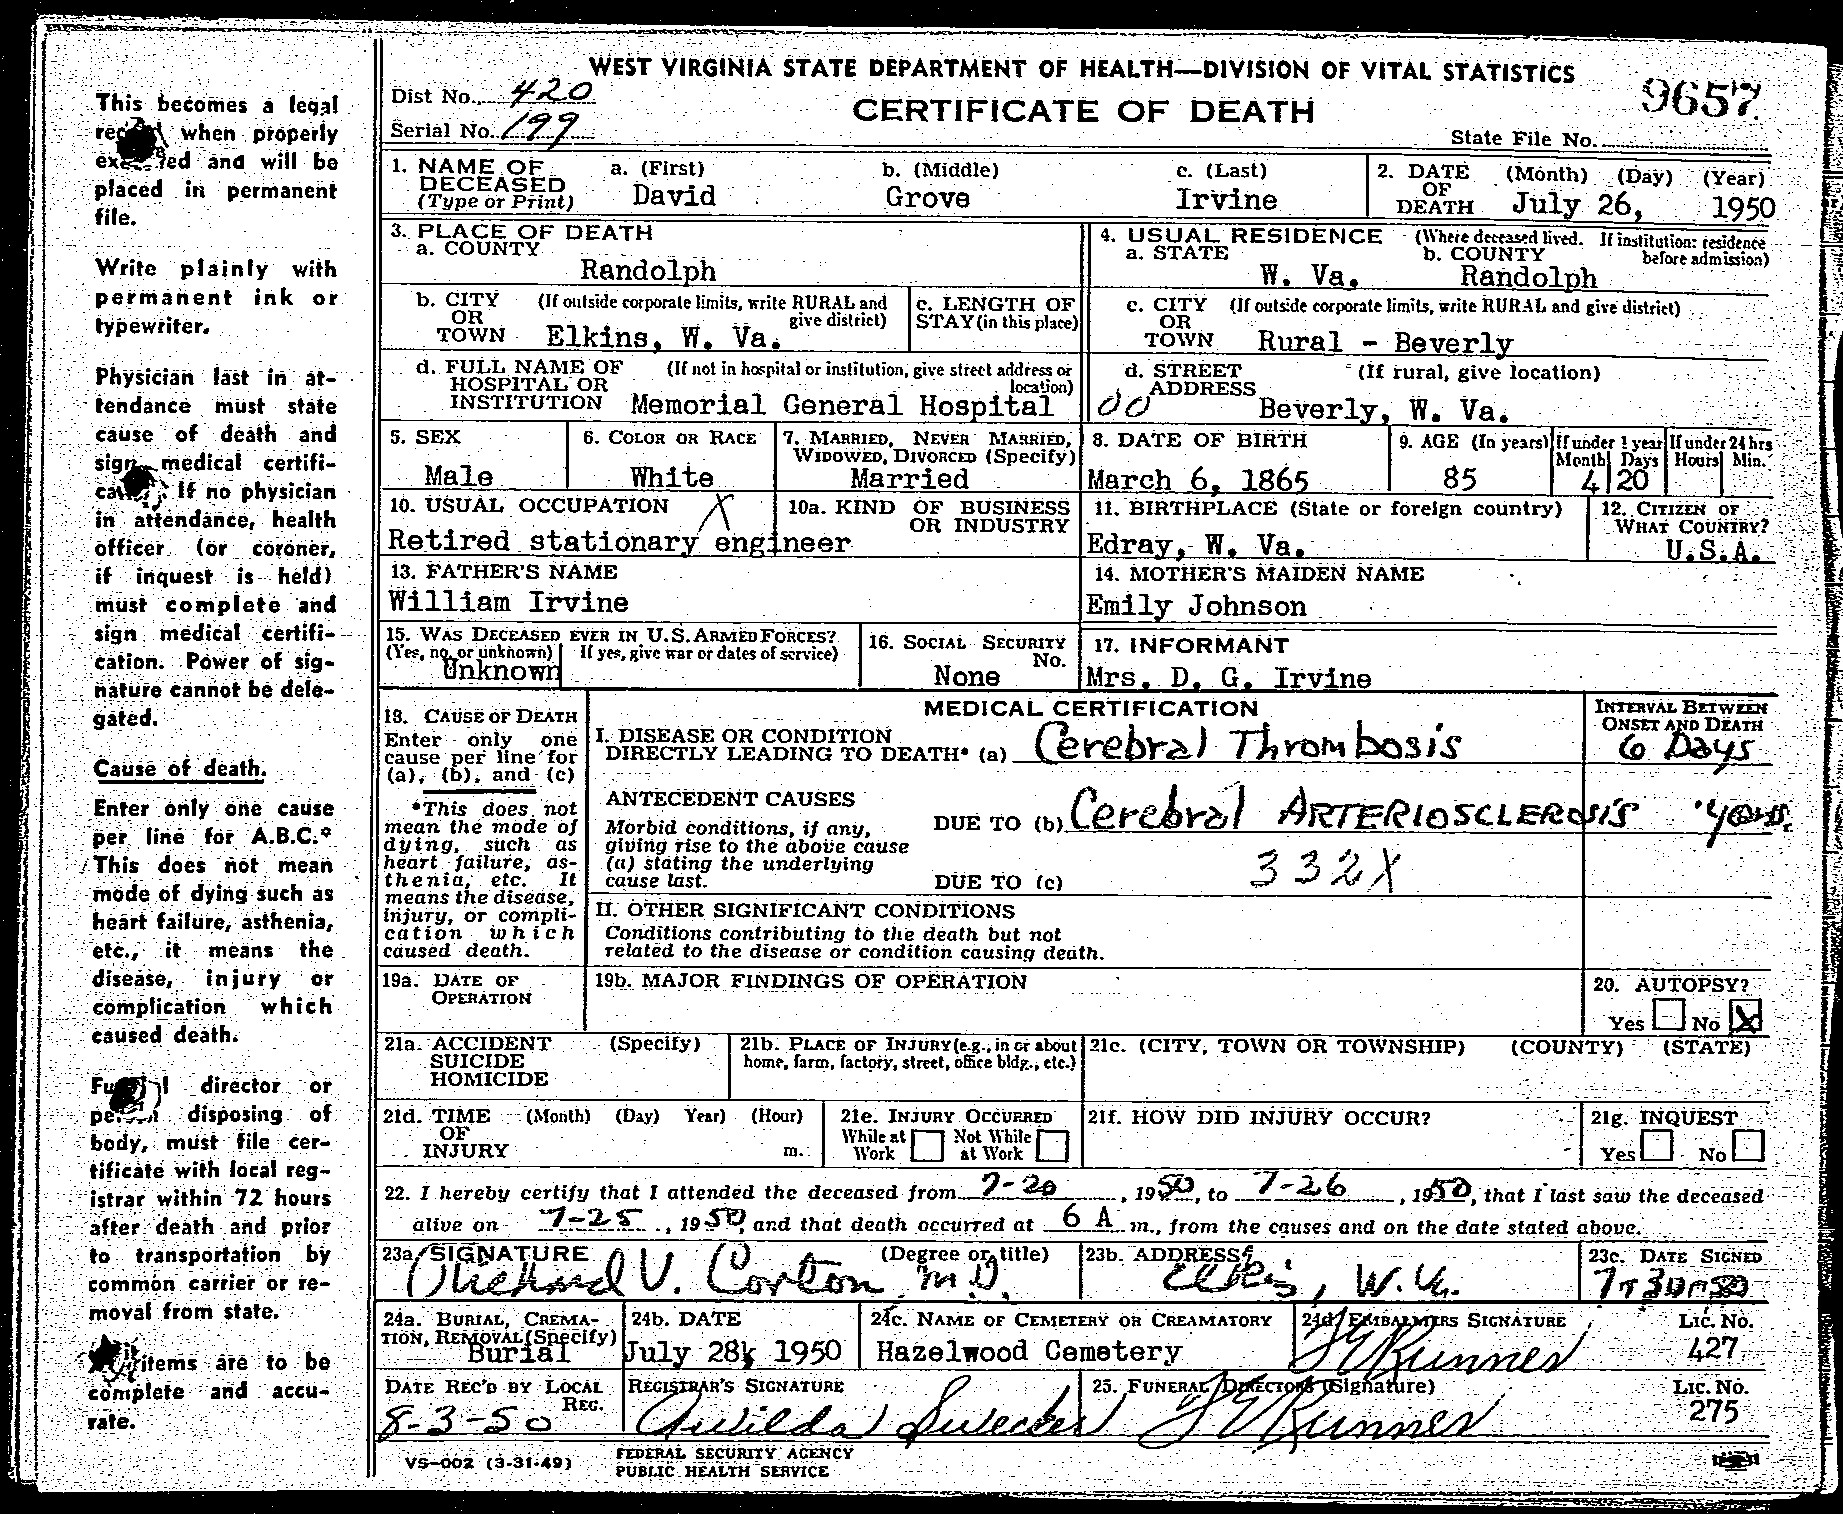 This becomes a legal
when properly
and will be
placed in permanent
file.
Write plainly with
permanent ink or
typewriter.
Physician last in at-
tendance must state
cause of death and
sign medical certifi-
If no physician
in attendance, health
officer (or coroner,
if inquest is held)
must complete and
sign medical certifi-
cation. Power of sig-
nature cannot be dele-
gated.
Cause of death.
Enter only one cause
per line for A.B.C.*
This does not mean
mode of dying such as
heart failure, asthenia,
etc., it means the
disease, injury or
complication which
caused death.
director or
disposing of
body, must file cer-
tificate with local reg-
istrar within 72 hours
after death and prior
to transportation by
common carrier or re-
moval from state.
items are to be
complete and accu-
rate.
WEST VIRGINIA STATE DEPARTMENT OF HEALTH—DIVISION OF VITAL STATISTICS
Dist No. 420
CERTIFICATE OF DEATH
9657
Serial No. 199
State File No.
1. NAME OF DECEASED (Type or Print) a. (First) b. (Middle) c. (Last)
David Grove Irvine
2. DATE OF DEATH (Month) (Day) (Year)
July 26, 1950
3. PLACE OF DEATH
a. COUNTY
Randolph
4. USUAL RESIDENCE (Where deceased lived. If institution: residence before admission)
a. STATE b. COUNTY
W. Va. Randolph
b. CITY OR TOWN (If outside corporate limits, write RURAL and give district)
Elkins, W. Va.
c. LENGTH OF STAY (in this place)
c. CITY OR TOWN (If outside corporate limits, write RURAL and give district)
Rural - Beverly
d. FULL NAME OF HOSPITAL OR INSTITUTION (If not in hospital or institution, give street address or location)
Memorial General Hospital
d. STREET ADDRESS (If rural, give location)
00 Beverly, W. Va.
5. SEX
Male
6. COLOR OR RACE
White
7. MARRIED, NEVER MARRIED, WIDOWED, DIVORCED (Specify)
Married
8. DATE OF BIRTH
March 6, 1865
9. AGE (In years)
85
If under 1 year
Month Days
4 20
If under 24 hrs
Hours Min.
10. USUAL OCCUPATION X
Retired stationary engineer
10a. KIND OF BUSINESS OR INDUSTRY
11. BIRTHPLACE (State or foreign country)
Edray, W. Va.
12. CITIZEN OF WHAT COUNTRY?
U.S.A.
13. FATHER'S NAME
William Irvine
14. MOTHER'S MAIDEN NAME
Emily Johnson
15. WAS DECEASED EVER IN U.S. ARMED FORCES?
(Yes, no, or unknown) If yes, give war or dates of service)
Unknown
16. SOCIAL SECURITY No.
None
17. INFORMANT
Mrs. D. G. Irvine
18. CAUSE OF DEATH
Enter only one
cause per line for
(a), (b), and (c)
*This does not
mean the mode of
dying, such as
heart failure, as-
thenia, etc. It
means the disease,
injury, or compli-
cation which
caused death.
MEDICAL CERTIFICATION
INTERVAL BETWEEN ONSET AND DEATH
I. DISEASE OR CONDITION
DIRECTLY LEADING TO DEATH* (a) Cerebral Thrombosis 6 Days
ANTECEDENT CAUSES
Morbid conditions, if any,
giving rise to the above cause
(a) stating the underlying
cause last.
DUE TO (b) Cerebral ARTERIOSCLEROSIS years.
332X
DUE TO (c)
II. OTHER SIGNIFICANT CONDITIONS
Conditions contributing to the death but not
related to the disease or condition causing death.
19a. DATE OF OPERATION
19b. MAJOR FINDINGS OF OPERATION
20. AUTOPSY?
Yes No X
21a. ACCIDENT SUICIDE HOMICIDE (Specify)
21b. PLACE OF INJURY (e.g., in or about home, farm, factory, street, office bldg., etc.)
21c. (CITY, TOWN OR TOWNSHIP) (COUNTY) (STATE)
21d. TIME OF INJURY (Month) (Day) Year) (Hour) m.
21e. INJURY OCCURRED
While at Work Not While at Work
21f. HOW DID INJURY OCCUR?
21g. INQUEST
Yes No
22. I hereby certify that I attended the deceased from 7-20, 1950, to 7-26, 1950, that I last saw the deceased
alive on 7-25, 1950, and that death occurred at 6 A m., from the causes and on the date stated above.
23a. SIGNATURE (Degree or title)
Richard V. M.D.
23b. ADDRESS
Elkins, W. Va.
23c. DATE SIGNED
7-30-50
24a. BURIAL, CREMA-
TION, REMOVAL (Specify)
Burial
24b. DATE
July 28, 1950
24c. NAME OF CEMETERY OR CREAMATORY
Hazelwood Cemetery
24d. EMBALMERS SIGNATURE Lic. No.
Runner 427
DATE REC'D BY LOCAL REG.
8-3-50
REGISTRAR'S SIGNATURE
Awilda Swecker
25. FUNERAL DIRECTORS (Signature) Lic. No.
Runner 275
VS-002 (3-31-49)
FEDERAL SECURITY AGENCY
PUBLIC HEALTH SERVICE